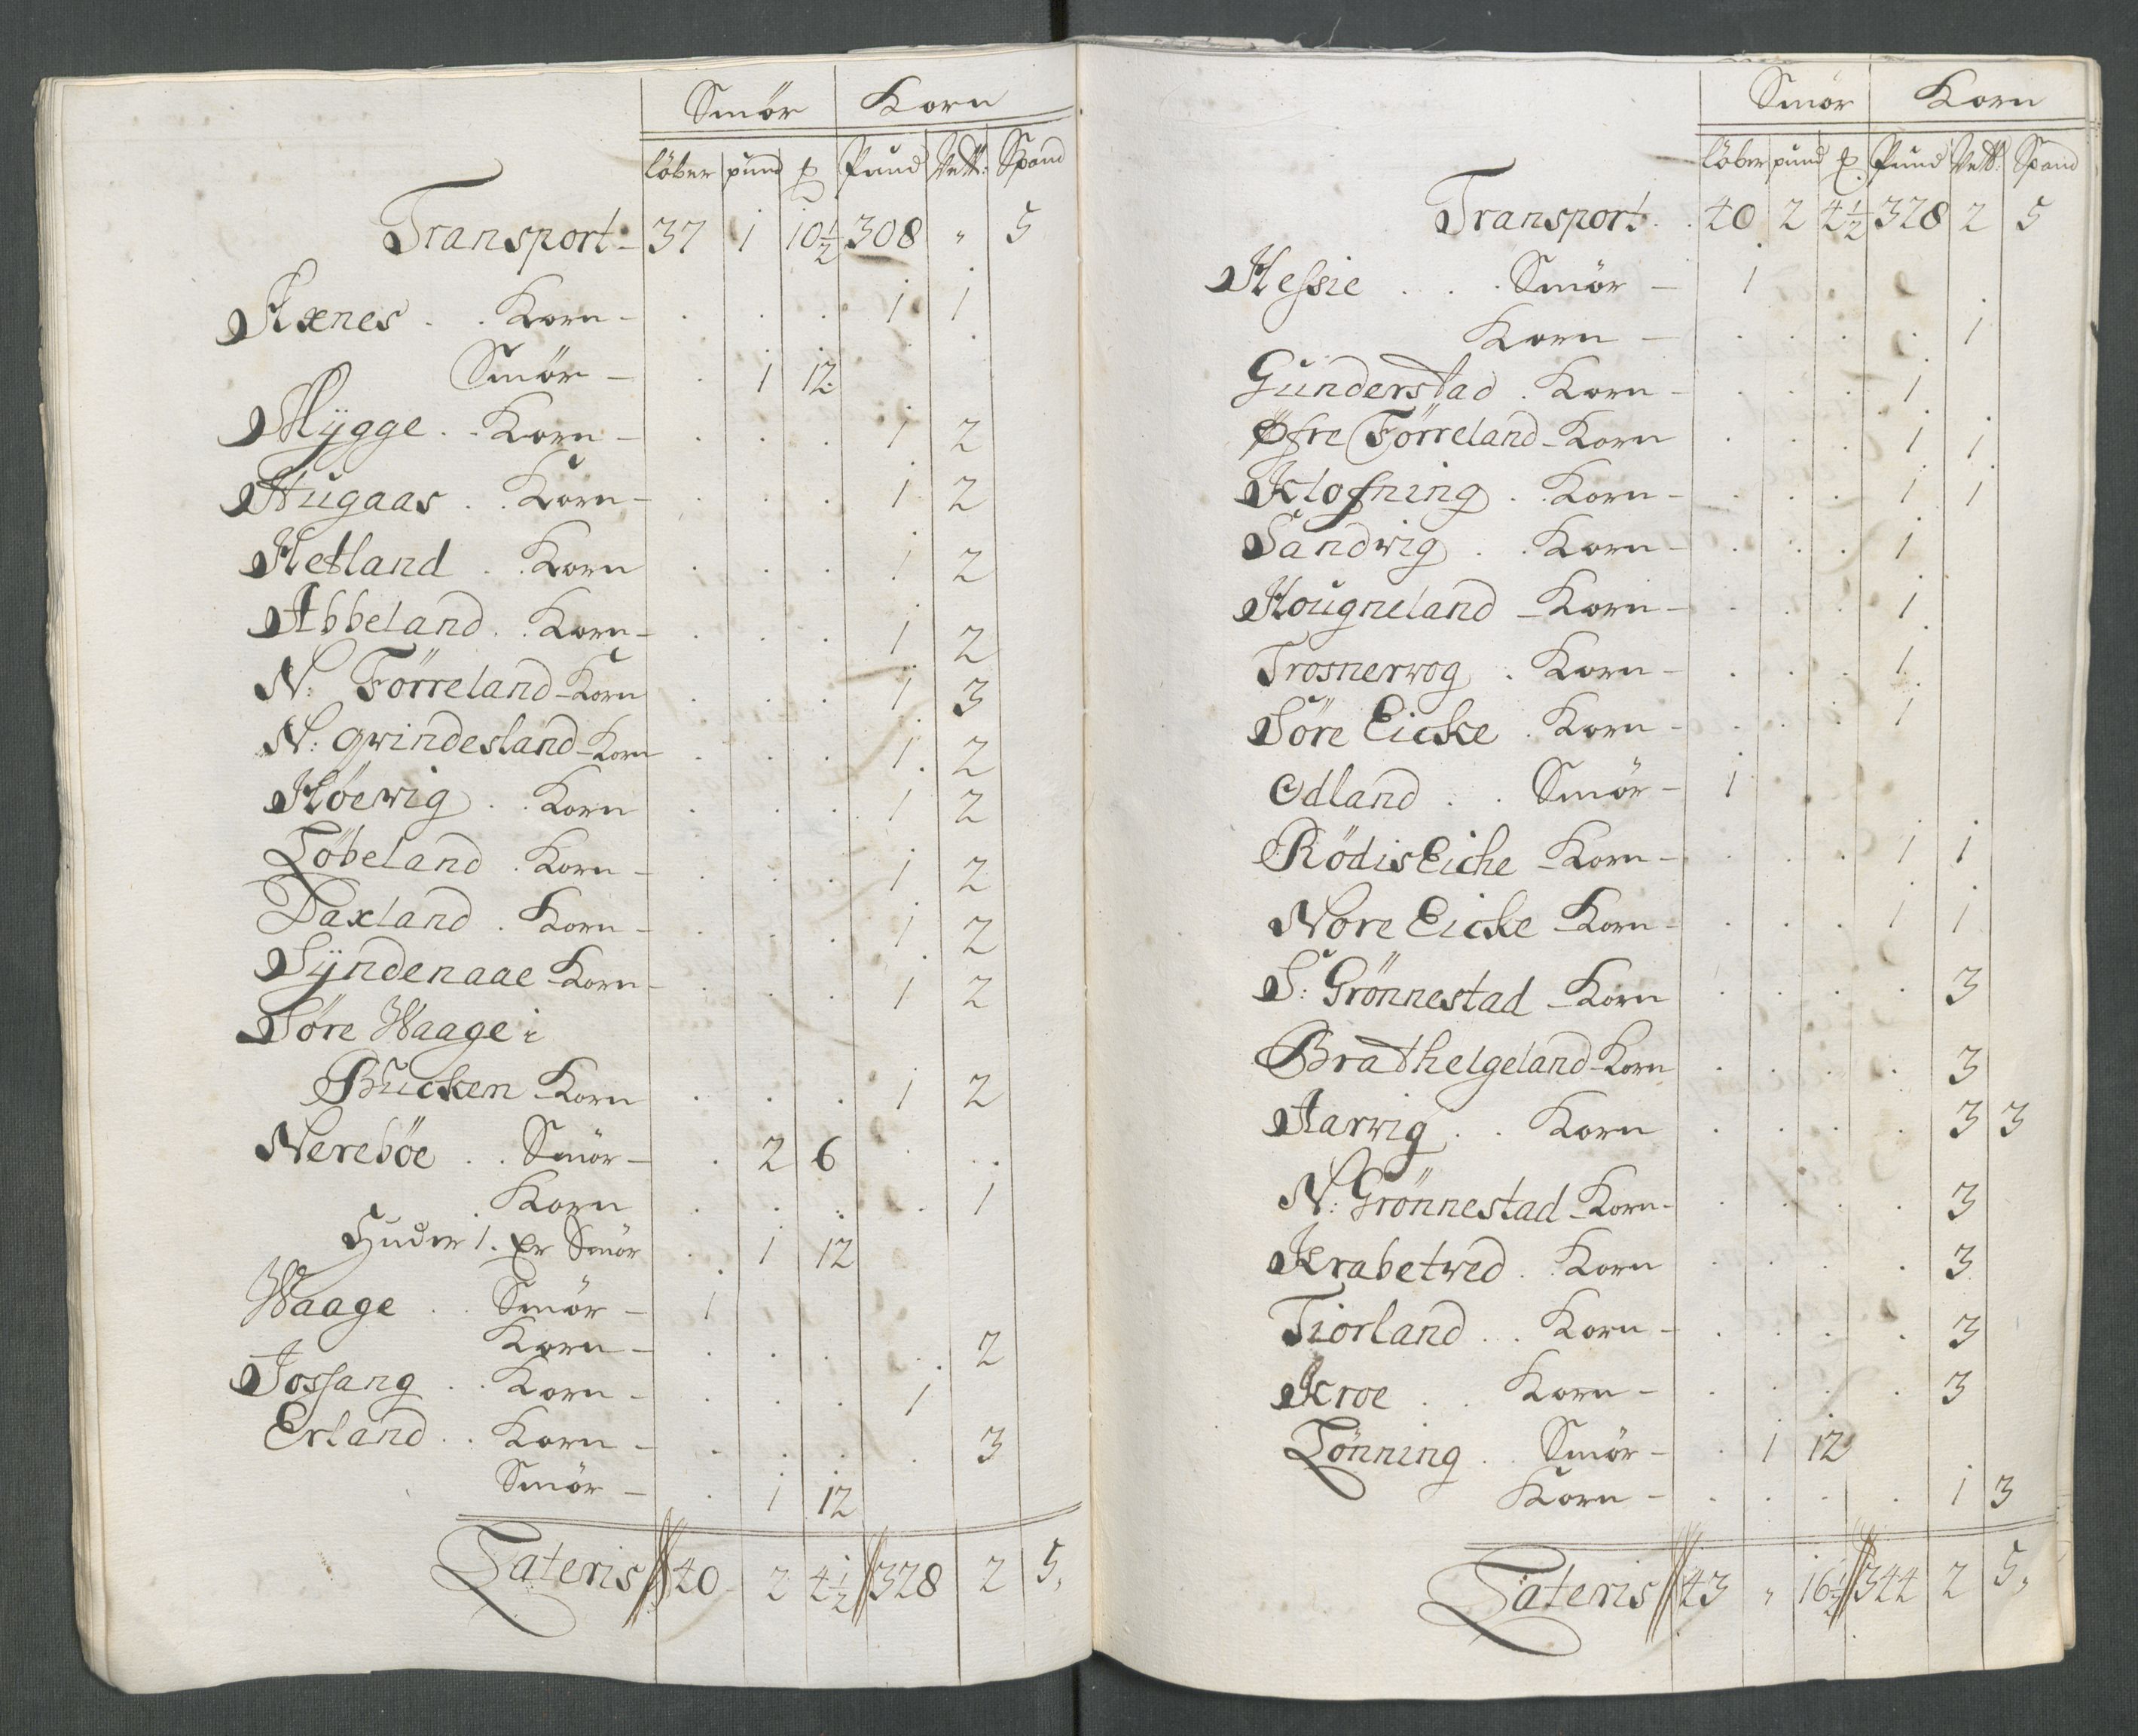 Smör Korn
löber pund ℔ Pund Vett: Spand
Transport - 37 1 10½ 308 " 5
Axnes . . Korn - . . . 1 1
Smör - . 1 12
Mÿgge . . Korn - . . . 1 2
Augaas . . Korn - . . . 1 2
Hetland . . Korn . . . 1 2
Abbeland . . Korn - . . . 1 2
N: Förreland - Korn . . . 1 3
N: Qwindesland - Korn . . . 1 2
Höewig . . Korn . . . 1 2
Löbeland . Korn - . . . 1 2
Daxland . Korn - . . . 1 2
Sÿndenaae - Korn - . . . 1 2
Söre Waage i
Bucken - Korn . . . 1 2
Nereböe . . Smör - . 2 6
Korn . . . . 1
Huder 1. Er Smör . 1 12
Waage . . Smör - 1
Korn - . . . . 2
Jossang . . Korn - . . . 1
Erland . . Korn - . . . . 3
Smör - . 1 12
Lateris 40 2 4½ 328 2 5,
Smör Korn
löber pund ℔ Pund Vett: Spand
Transport . . 40 2 4½ 328 2 5
Hessie . . . Smör - 1
Korn - . . . . 1
Gunderstad . Korn - . . . 1
Øfre Förreland - Korn . . . 1 1
Klofning . . Korn - . . . 1 1
Sandwig . . Korn - . . . 1
Hougneland - Korn - . . . 1
Trosnerwog . Korn - . . . 1
Söre Eicke . Korn - . . . 1
Odland . . Smör - 1
RödisEiche - Korn - . . . 1 1
Nore Eicke - Korn - . . . 1 1
S: Grönnestad - Korn . . . . 3
Brathelgeland - Korn . . . . 3
Aarwig . . Korn . . . . 3 3
N: Grönnestad - Korn - . . . . 3
Krabetwed . . Korn . . . . 3
Tiorland . . Korn - . . . . 3
Kroe . . Korn - . . . . 3
Lönning . . Smör - . 1 12
Korn - . . . . 1 3
Lateris 43 " 16½ 344 2 5,